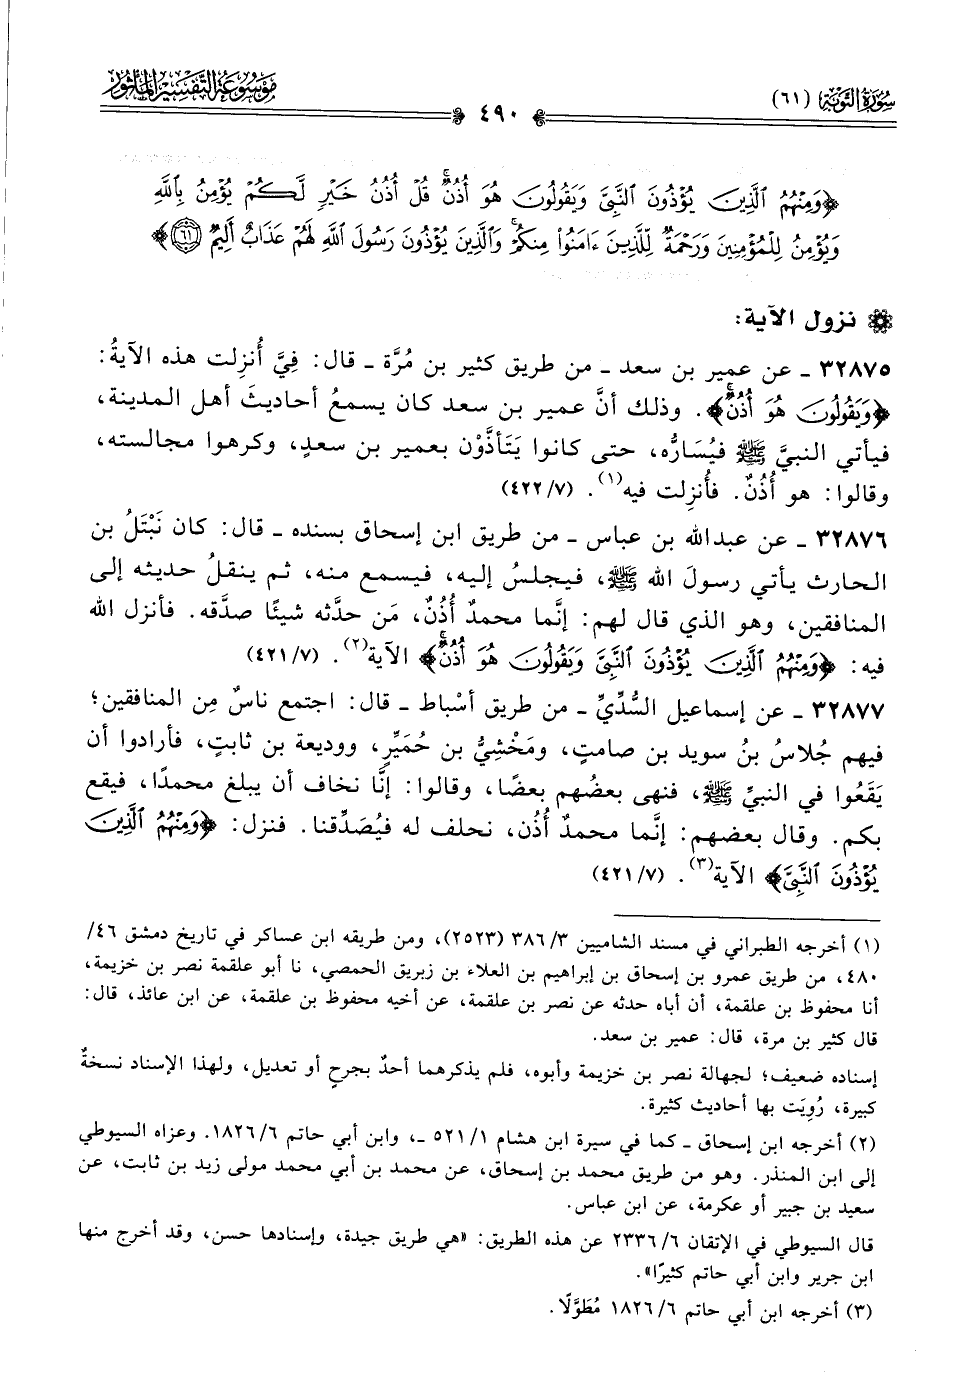 سورة التوبة (٦١)
٤٩٠
موسوعة التفسير المأثور
﴿وَمِنْهُمُ ٱلَّذِينَ يُؤْذُونَ ٱلنَّبِىَّ وَيَقُولُونَ هُوَ أُذُنٌۚ قُلْ أُذُنُ خَيْرٍ لَّكُمْ يُؤْمِنُ بِٱللَّهِ
وَيُؤْمِنُ لِلْمُؤْمِنِينَ وَرَحْمَةٌ لِّلَّذِينَ ءَامَنُوا۟ مِنكُمْۚ وَٱلَّذِينَ يُؤْذُونَ رَسُولَ ٱللَّهِ لَهُمْ عَذَابٌ أَلِيمٌ ٦١﴾
نزول الآية:
٣٢٨٧٥ ـ عن عمير بن سعد ـ من طريق كثير بن مُرَّة ـ قال: فِيَّ أُنزِلت هذه الآيةُ:
﴿وَيَقُولُونَ هُوَ أُذُنٌۚ﴾. وذلك أنَّ عمير بن سعد كان يسمعُ أحاديثَ أهل المدينة،
فيأتي النبيَّ ﷺ فيُسَارُّه، حتى كانوا يَتَأذَّوْن بعمير بن سعدٍ، وكرهوا مجالسته،
وقالوا: هو أُذُنٌ. فأُنزِلت فيه(١). (٤٢٢/٧)
٣٢٨٧٦ ـ عن عبدالله بن عباس ـ من طريق ابن إسحاق بسنده ـ قال: كان نَبْتَلُ بن
الحارث يأتي رسولَ الله ﷺ، فيجلسُ إليه، فيسمع منه، ثم ينقلُ حديثه إلى
المنافقين، وهو الذي قال لهم: إنَّما محمدٌ أُذُنٌ، مَن حدَّثه شيئًا صدَّقه. فأنزل الله
فيه: ﴿وَمِنْهُمُ ٱلَّذِينَ يُؤْذُونَ ٱلنَّبِىَّ وَيَقُولُونَ هُوَ أُذُنٌۚ﴾ الآية(٢). (٤٢١/٧)
٣٢٨٧٧ ـ عن إسماعيل السُّدِّيِّ ـ من طريق أسْباط ـ قال: اجتمع ناسٌ مِن المنافقين؛
فيهم جُلاسُ بنُ سويد بن صامتٍ، ومَخْشِيُّ بن حُمَيِّرٍ، ووديعة بن ثابتٍ، فأرادوا أن
يَقَعُوا في النبيِّ ﷺ، فنهى بعضُهم بعضًا، وقالوا: إنَّا نخاف أن يبلغ محمدًا، فيقع
بكم. وقال بعضهم: إنَّما محمدٌ أُذُن، نحلف له فيُصَدِّقنا. فنزل: ﴿وَمِنْهُمُ ٱلَّذِينَ
يُؤْذُونَ ٱلنَّبِىَّ﴾ الآية(٣). (٤٢١/٧)
(١) أخرجه الطبراني في مسند الشاميين ٣/ ٣٨٦ (٢٥٢٣)، ومن طريقه ابن عساكر في تاريخ دمشق ٤٦/
٤٨٠، من طريق عمرو بن إسحاق بن إبراهيم بن العلاء بن زبريق الحمصي، نا أبو علقمة نصر بن خزيمة،
أنا محفوظ بن علقمة، أن أباه حدثه عن نصر بن علقمة، عن أخيه محفوظ بن علقمة، عن ابن عائذ، قال:
قال كثير بن مرة، قال: عمير بن سعد.
إسناده ضعيف؛ لجهالة نصر بن خزيمة وأبوه، فلم يذكرهما أحدٌ بجرحٍ أو تعديل، ولهذا الإسناد نسخةٌ
كبيرة، رُوِيَت بها أحاديث كثيرة.
(٢) أخرجه ابن إسحاق ـ كما في سيرة ابن هشام ١/ ٥٢١ ـ، وابن أبي حاتم ٦/ ١٨٢٦. وعزاه السيوطي
إلى ابن المنذر. وهو من طريق محمد بن إسحاق، عن محمد بن أبي محمد مولى زيد بن ثابت، عن
سعيد بن جبير أو عكرمة، عن ابن عباس.
قال السيوطي في الإتقان ٦/ ٢٣٣٦ عن هذه الطريق: «هي طريق جيدة، وإسنادها حسن، وقد أخرج منها
ابن جرير وابن أبي حاتم كثيرًا».
(٣) أخرجه ابن أبي حاتم ٦/ ١٨٢٦ مُطَوَّلًا.